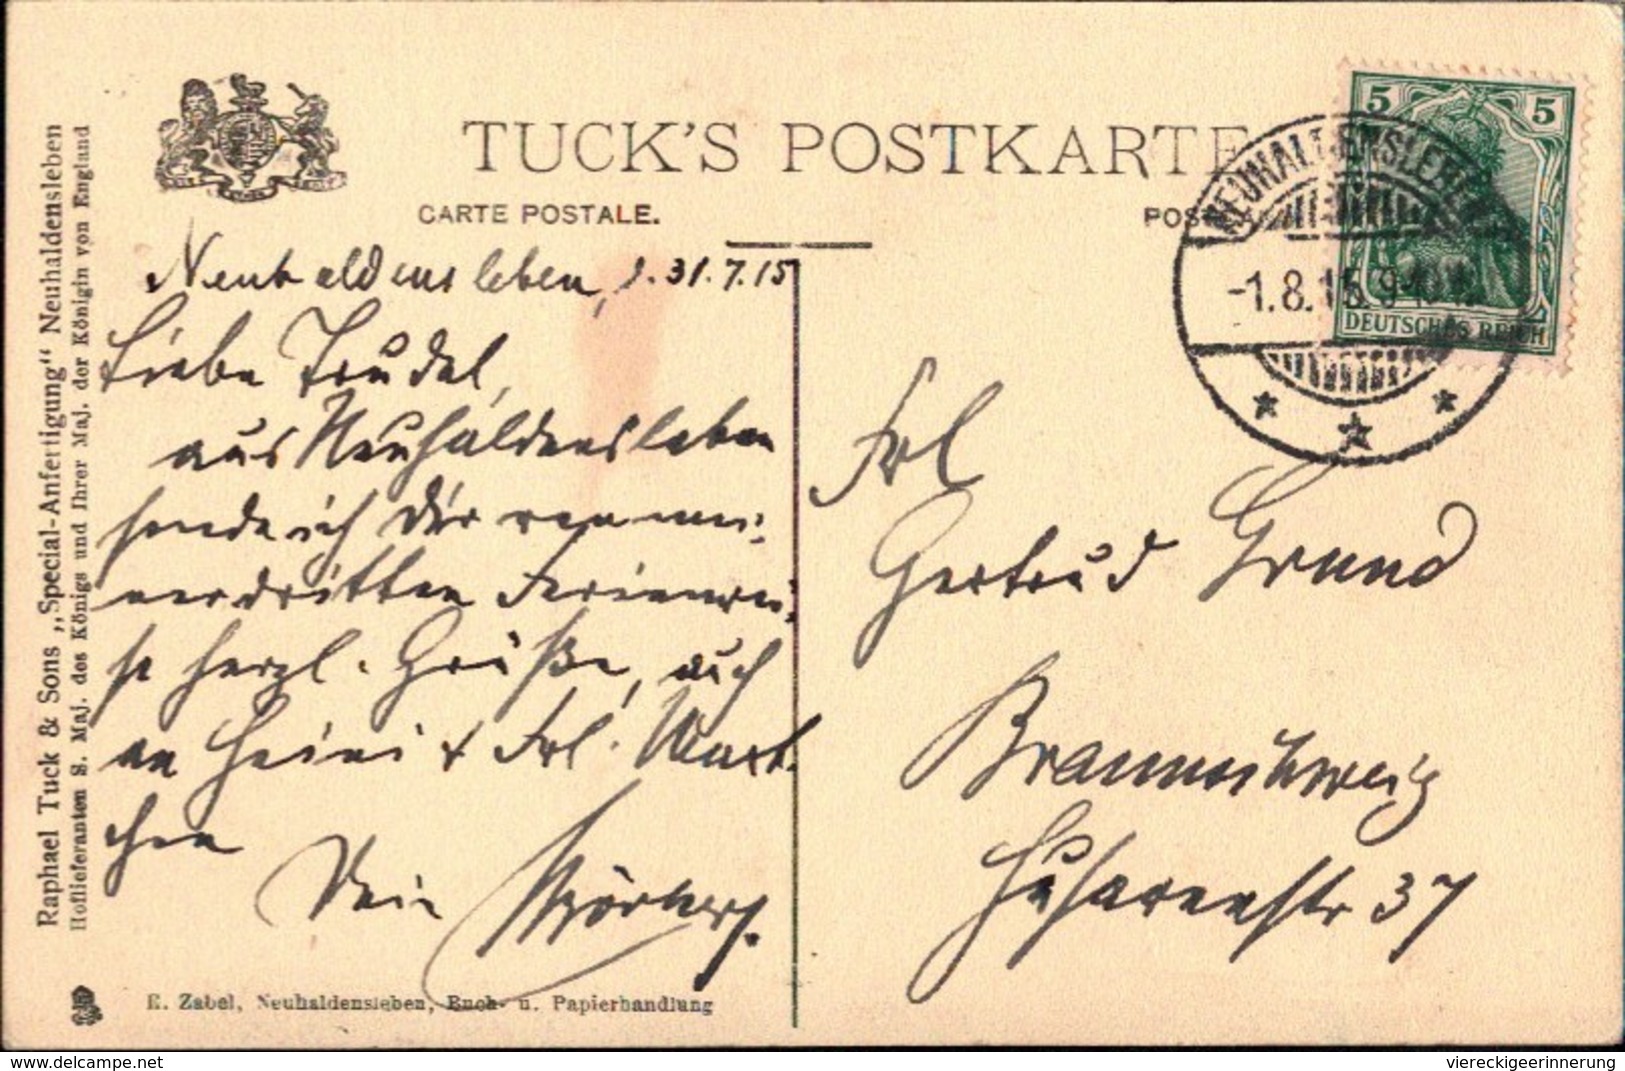 Raphael Tuck & Sons „Special-Anfertigung“ Neuhaldensleben
Hoflieferanten S. Maj. des Königs und Ihrer Maj. der Königin von England
TUCK'S POSTKARTE
CARTE POSTALE.
POS
5 5
DEUTSCHES REICH
NEUHALDENSLEBEN
-1.8.15.9-10
Neuhaldensleben, 31.7.15
Liebe Trudel,
aus Neuhaldensleben
sende ich Dir von mei-
ner dritten Ferienrei-
se herzl. Grüße, auch
an Heini + Frl.
chen
Dein
Frl
Gertrud Grund
Braunschweig
Husarenstr 37
E. Zabel, Neuhaldensleben, Buch- u. Papierhandlung
viereckigeerinnerung
delcampe.net